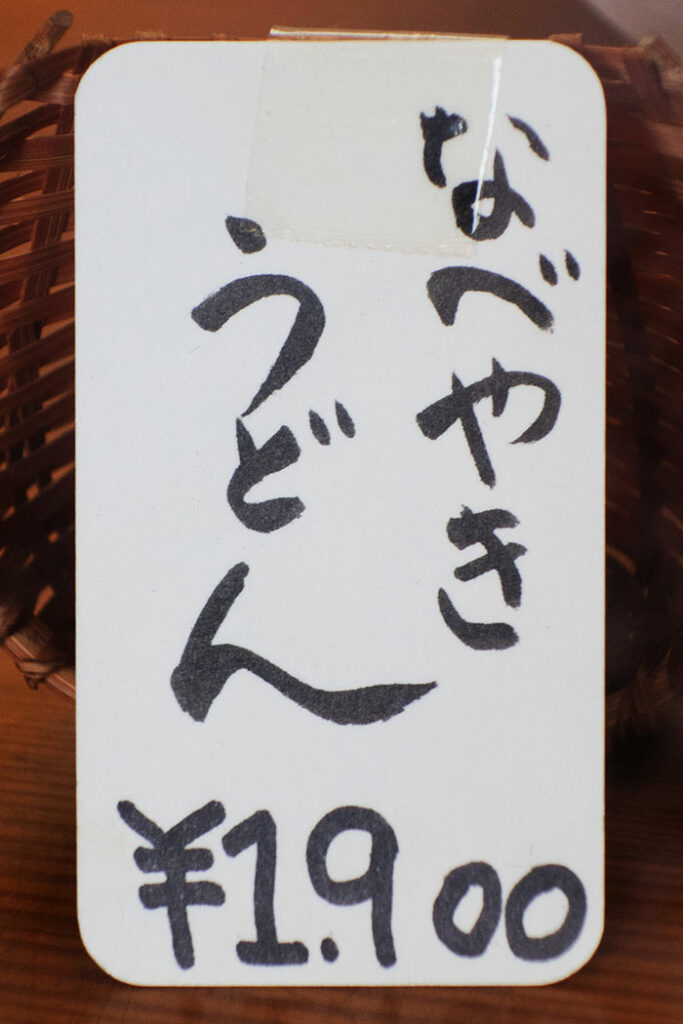 なべやき
うどん
¥1.900